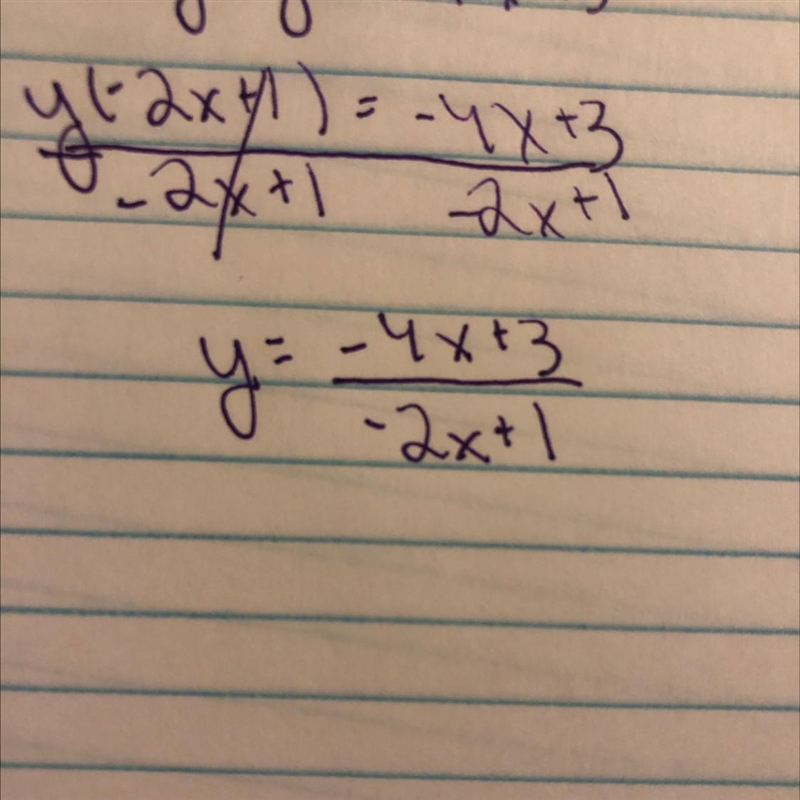 y(-2x+1) = -4x+3
-2x+1 -2x+1
y = -4x+3
-2x+1